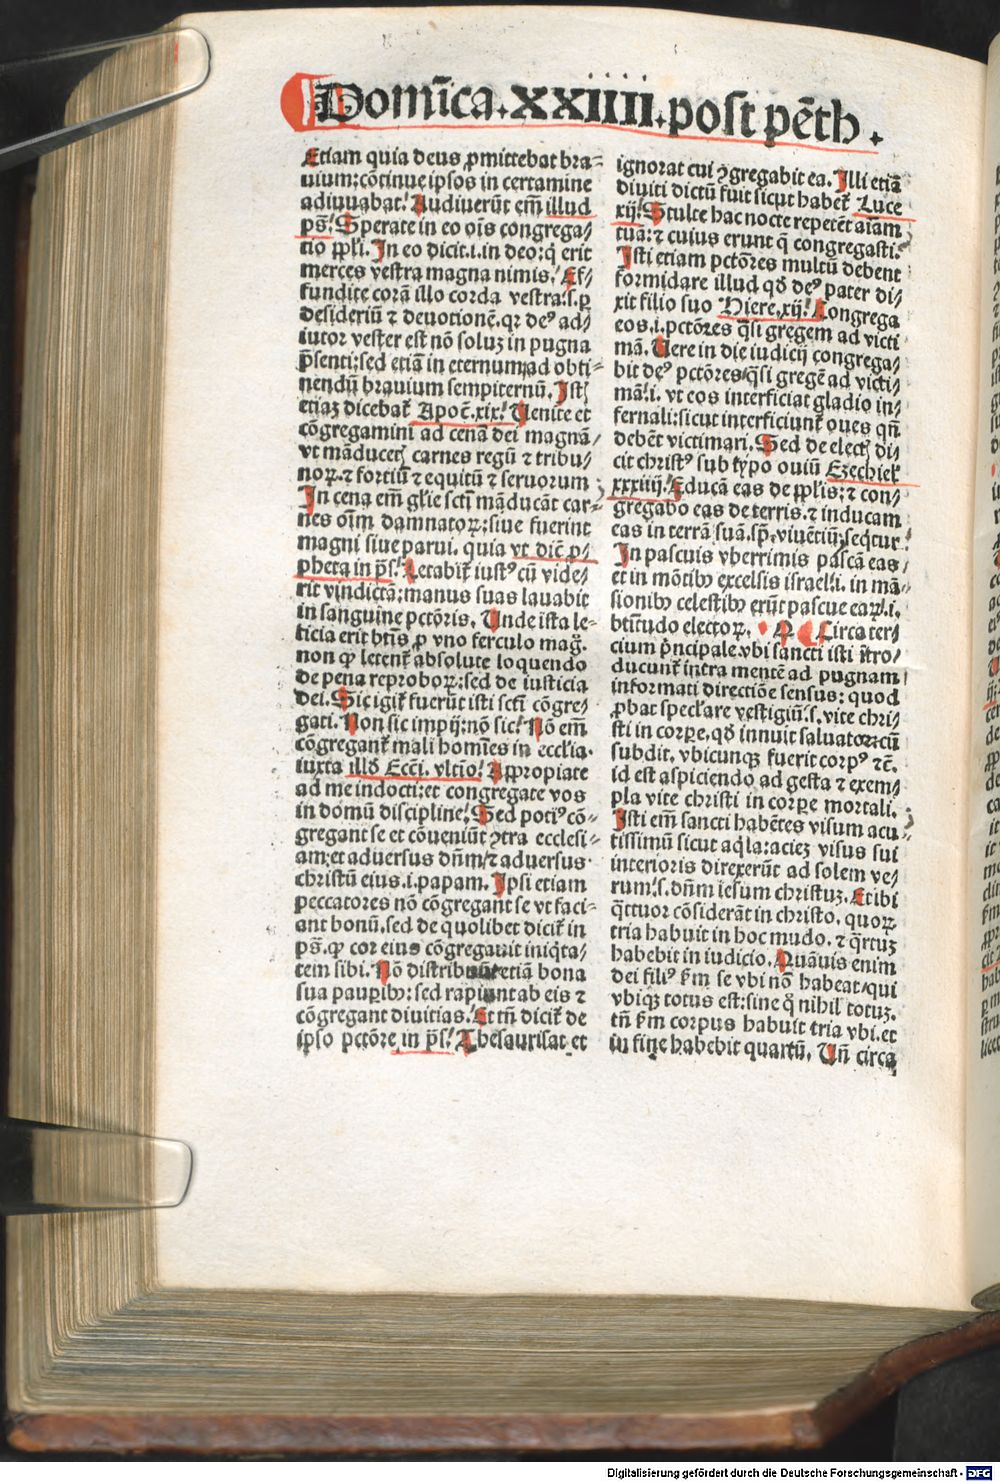 Domīca.XXIIII.post pēth.
Etiam quia deus ꝓmittebat bra⸗
uium:cōtinue ipsos in certamine
adiuuabat. Audiuerūt em̄ illud
ps̄. Sperate in eo oīs congrega/
tio ppl̓i. In eo dicit.i.in deo:q̄ erit
merces vestra magna nimis. Ef/
fundite corā illo corda vestra:s.ꝑ
desideriū ⁊ deuotionē.qꝛ deꝰ ad/
iutor vester est nō soluꝫ in pugna
p̄senti:sed etiā in eternum ad obti⸗
nendū brauium sempiternū. Istꝭ
etiaꝫ dicebat̄ Apoc̄.xix. Uenite et
cōgregamini ad cenā dei magnā/
vt māducetꝭ carnes regū ⁊ tribu/
noꝝ.⁊ fortiū ⁊ equitū ⁊ seruorum
In cena em̄ gl̓ie sctī māducāt car⸗
nes oīm damnatoꝝ:siue fuerint
magni siue parui. quia vt dic̄ ꝓ/
pheta in ps̄. Letabit̄ iustꝰ cū vide/
rit vindictā:manus suas lauabit
in sanguine pctōris. Unde ista le⸗
ticia erit btīs ꝓ vno ferculo mag̊.
non ꝙ letent̄ absolute loquendo
de pena reproboꝝ:sed de iusticia
dei. Sic igit̄ fuerūt isti sctī cōgre/
gati. Non sic impij:nō sic. Nō em̄
cōgregant̄ mali homīes in eccl̓ia.
iuxta illđ Ecc̄i. vltīo. Appropiate
ad me indocti:et congregate vos
in domū discipline. Sed potiꝰ cō⸗
gregant se et cōueniūt ꝯtra ecclesi⸗
am:et aduersus dn̄m/⁊ aduersus
christū eius.i.papam. Ipsi etiam
peccatores nō cōgregant se vt faci⸗
ant bonū.sed de quolibet dicit̄ in
ps̄.ꝙ cor eius cōgregauit iniq̇ta/
tem sibi. Nō distribuūt etiā bona
sua pauꝑibꝰ:sed rapiunt ab eis ⁊
cōgregant diuitias. Et tn̄ dicit̄ de
ipso pctōre in ps̄. Thesaurisat et
ignorat cui ꝯgregabit ea. Illi etiā
diuiti dictū fuit sicut habet̄ Luce
xij. Stulte hac nocte repetēt aīam
tuā:⁊ cuius erunt q̄ congregasti.
Isti etiam pctōres multū debent
formidare illud qđ deꝰ pater di/
xit filio suo Hiere.xij. Congrega
eos.i.pctōres q̄si gregem ad victi
mā. Uere in die iudicij congrega/
bit deꝰ pctōres/q̄si gregē ad victi/
mā.i. vt eos interficiat gladio in/
fernali:sicut interficiunt̄ oues qn̄
debēt victimari. Sed de electꝭ di/
cit christꝰ sub typo ouiū Ezechiel̓
xxxiiij. Educā eas de ppl̓is:⁊ con/
gregabo eas de terris.⁊ inducam
eas in terrā suā.sꝫ.viuētiū.seq̇tur
In pascuis vberrimis pascā eas/
et in mōtibꝰ excelsis israel.i. in mā⸗
sionibꝰ celestibꝰ erūt pascue eaꝝ.i.
btītudo electoꝝ. Circa ter/
cium p̄ncipale.vbi sancti isti ītro/
ducunt̄ intra mentē ad pugnam
informati directiōe sensus: quod
ꝓbat specl̓are vestigiū.s.vite chri/
sti in corꝑe.qđ innuit saluator:cū
subdit. vbicunqꝫ fuerit corpꝰ ⁊c̄.
id est aspiciendo ad gesta ⁊ exem/
pla vite christi in corꝑe mortali.
Isti em̄ sancti habētes visum acu⸗
tissimū sicut aq̇la:acieꝫ visus sui
interioris direxerūt ad solem ve/
rum.s.dn̄m iesum christuꝫ. Et ibi
q̄ttuor cōsiderāt in christo. quoꝝ
tria habuit in hoc mūdo. ⁊ q̄rtuꝫ
habebit in iudicio. Quāuis enim
dei filiꝰ ẜm se vbi nō habeat/qui
vbiqꝫ totus est:sine q̊ nihil totuꝫ.
tn̄ ẜm corpus habuit tria vbi.et
in fine habebit quartū. Un̄ circa
Digitalisierung gefördert durch die Deutsche Forschungsgemeinschaft - DFG